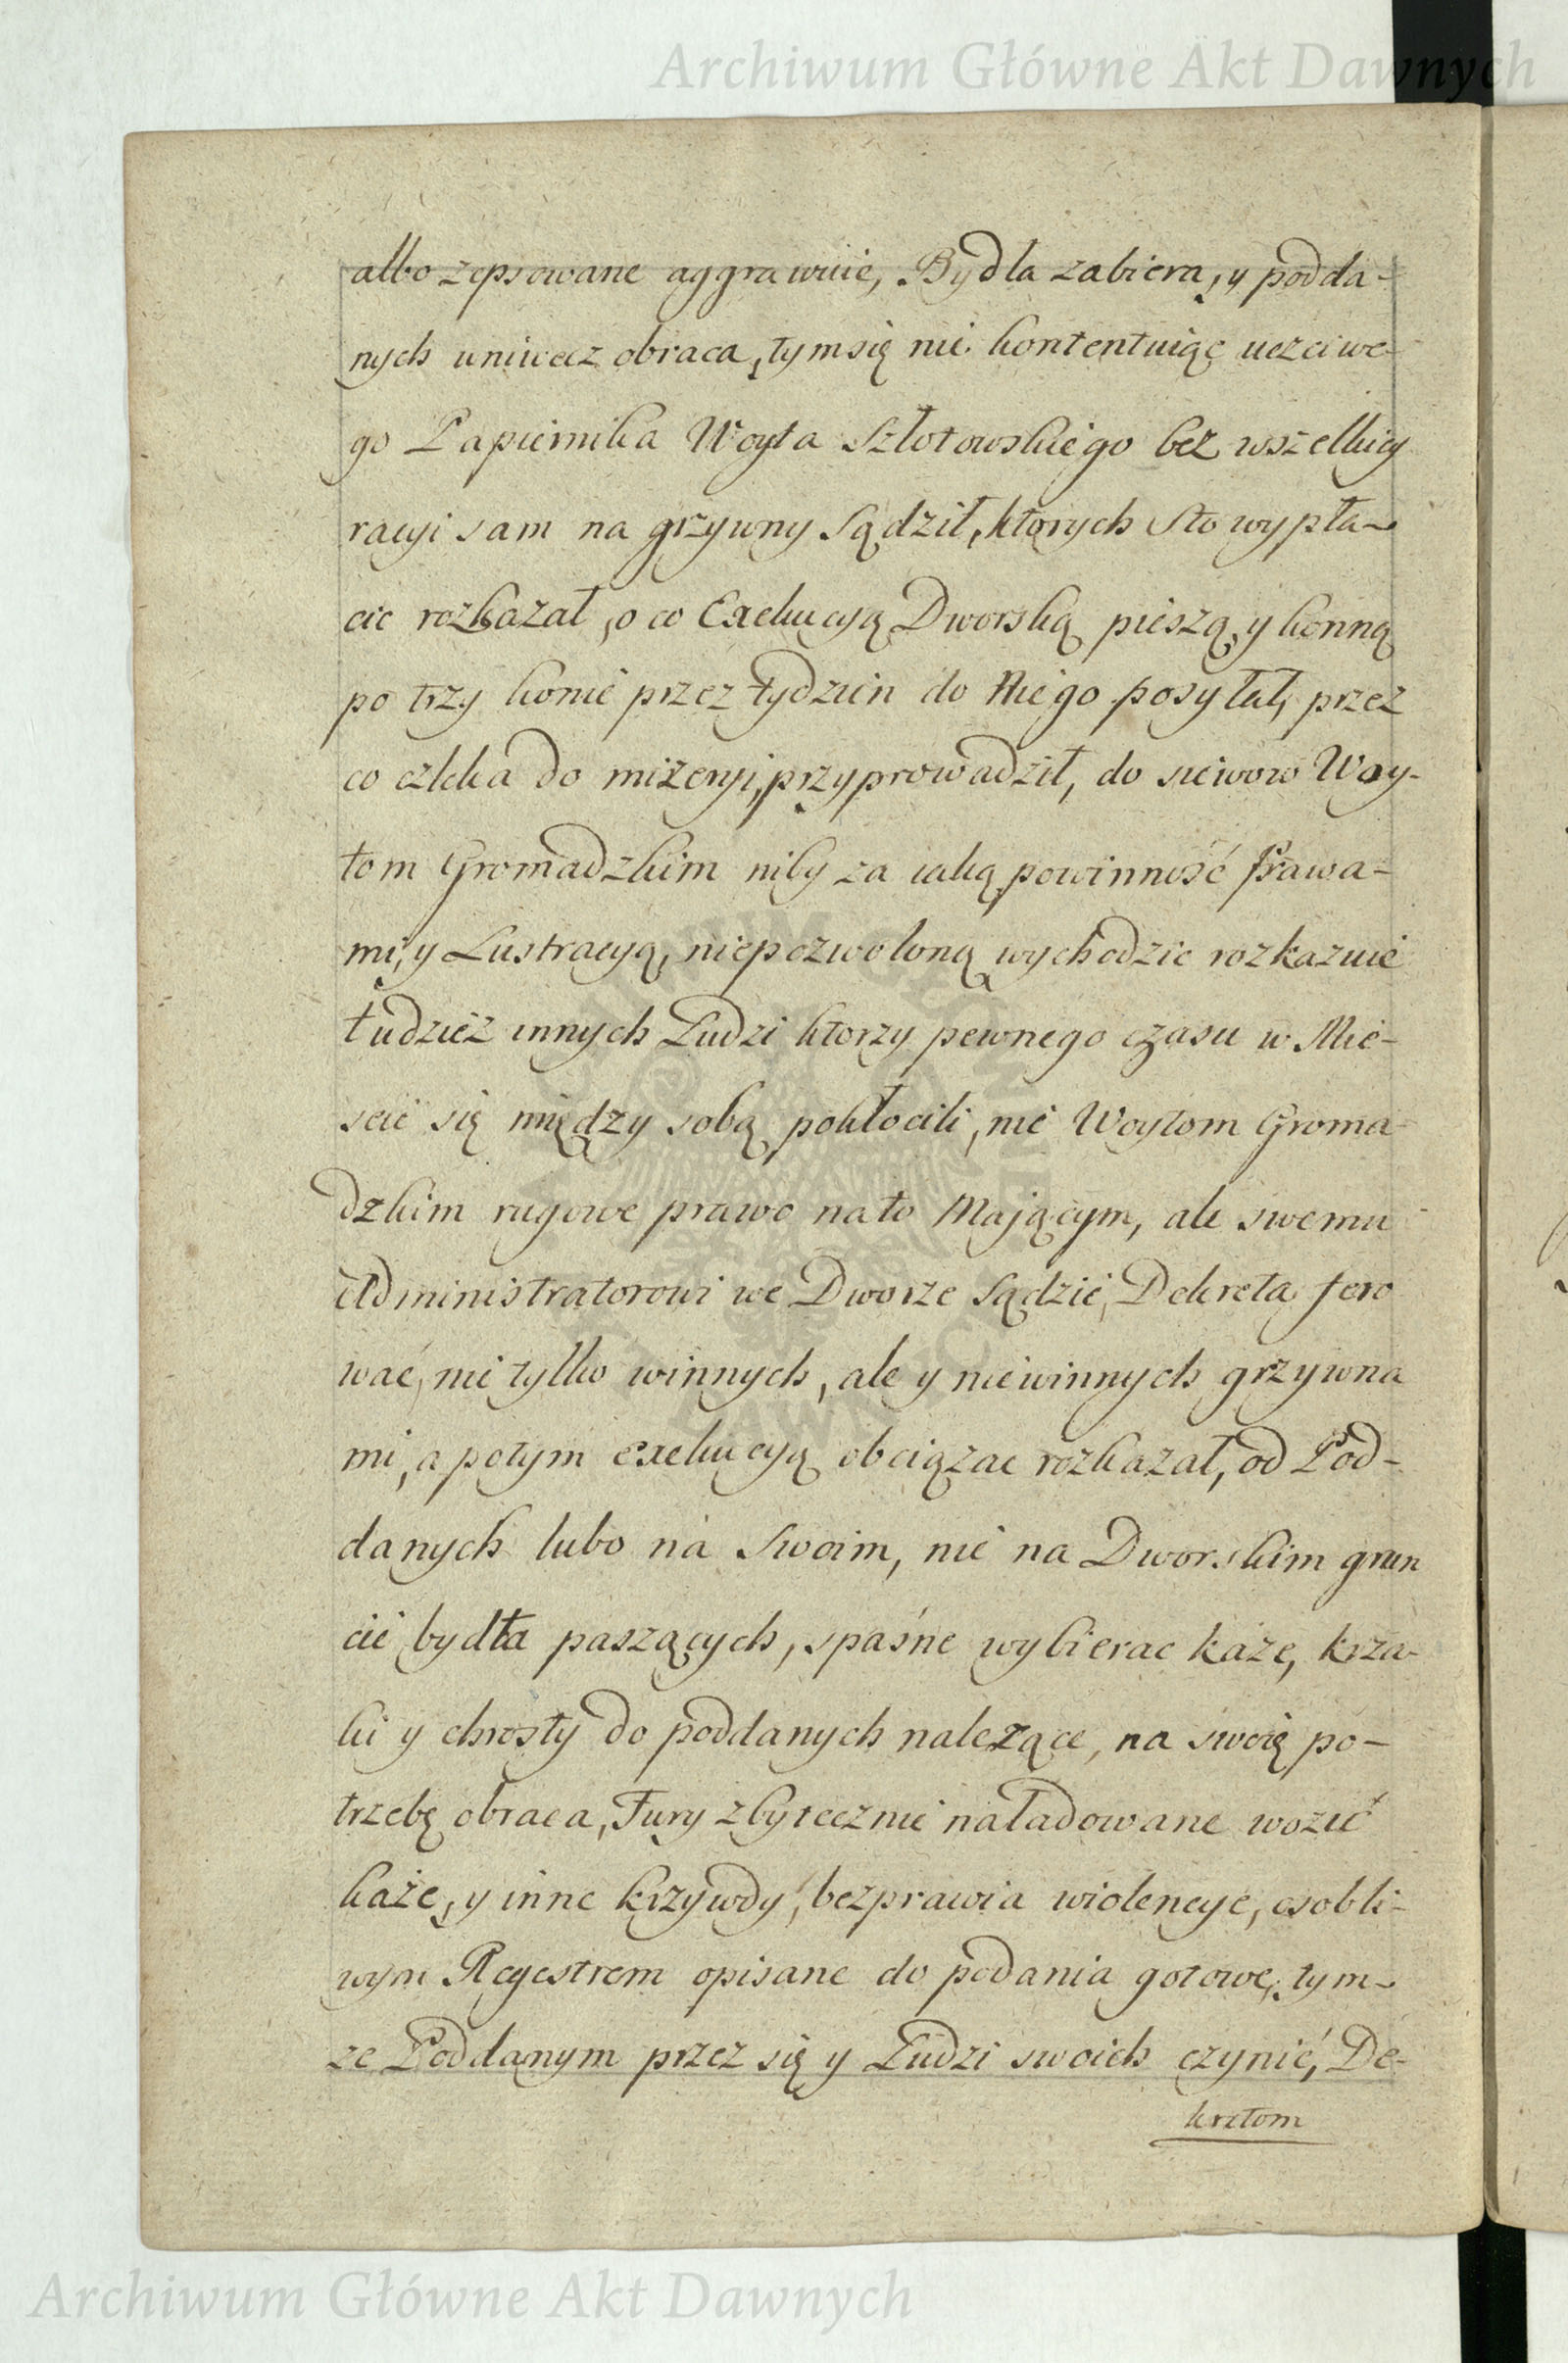 Archiwum Główne Akt Dawnych
albo zepsowane aggrawuie, Bydła zabiera, y podda-
nych uniwecz obraca, tym się nie kontentuiąc uczciwe-
go Papiernika Woyta Szłotowskiego bez wszelkiey
racyi sam na grzywny Sądził, ktorych Sto wypła-
cic rozkazał, o co Exekucyą Dworską pieszą, y konną
po trzy konie przez tydzien do Niego posyłał, przez
co człeka do mizeryi, przyprowadził, do siewow Woy-
tom Gromadzkim niby za iaką powinność Prawa-
mi, y Lustracyą, niepozwoloną wychodzic rozkazuie
tudziez innych Ludzi ktorzy pewnego czasu w Mie-
scie się między sobą pokłocili, nie Woytom Groma-
dzkim rugowe prawo na to Mającym, ale swemu
Administratorowi we Dworze Sądzić, Dekreta fero
wać, nie tylko winnych, ale y niewinnych grzywna
mi, a potym exekucyą obciązac rozkazał, od Pod-
danych lubo na Swoim, nie na Dworskim grun
cie bydła paszących, spaśne wybierac każe, krza-
ki y chrosty do poddanych należące, na swoię po-
trzebę obraca, Fury zbytecznie naładowane wozić
każe, y inne krzywdy, bezprawia wiolencye, osobli-
wym Regestrem opisane do podania gotowe, tym-
ze Poddanym przez się y Ludzi swoich czynić, De-
kretom
Archiwum Główne Akt Dawnych